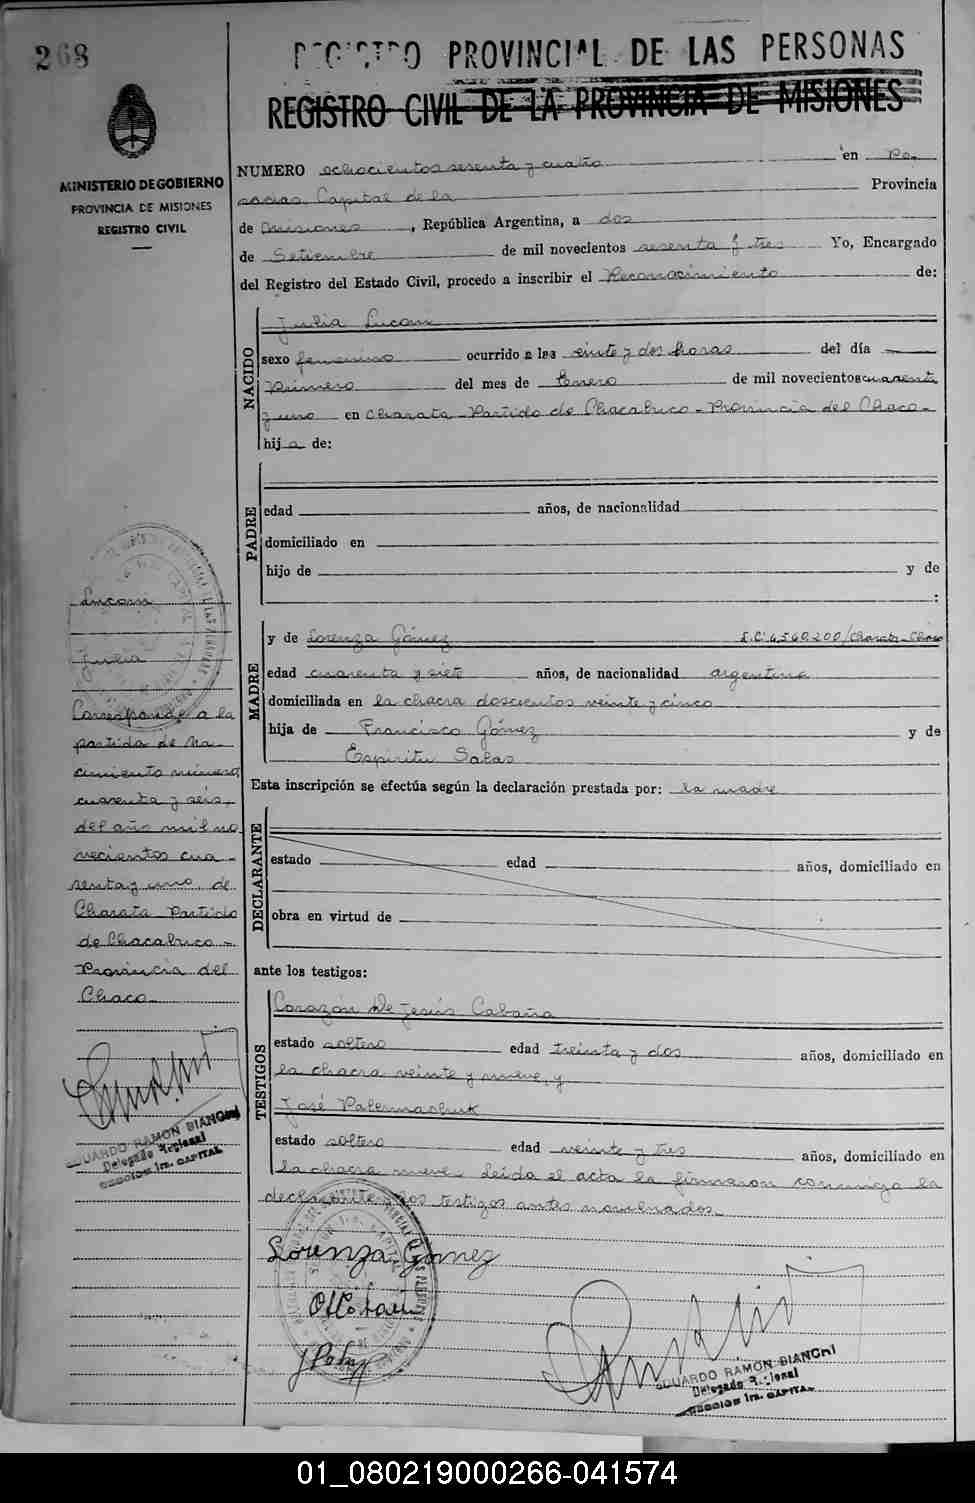 268
REGISTRO PROVINCIAL DE LAS PERSONAS
REGISTRO CIVIL DE LA PROVINCIA DE MISIONES
MINISTERIO DE GOBIERNO
PROVINCIA DE MISIONES
REGISTRO CIVIL
NUMERO ochocientos sesenta y cuatro en Po
sadas Capital de la Provincia
de Misiones, República Argentina, a dos
de Setiembre de mil novecientos sesenta y tres Yo, Encargado
del Registro del Estado Civil, procedo a inscribir el Reconocimiento de:
NACIDO
Julia Lucom
sexo femenino ocurrido a las veinte y dos horas del día
Primero del mes de Enero de mil novecientos cuarenta
y uno en Charata - Partido de Chacabuco - Provincia del Chaco -
hija de:
PADRE
edad años, de nacionalidad
domiciliado en
hijo de y de
:
MADRE
y de Lorenza Gómez L.C. 6.560.200/Charata - Chaco
edad cuarenta y siete años, de nacionalidad argentina
domiciliada en la chacra doscientos veinte y cinco
hija de Francisco Gómez y de
Espiritu Salas
Esta inscripción se efectúa según la declaración prestada por: la madre
DECLARANTE
estado edad años, domiciliado en
obra en virtud de
ante los testigos:
TESTIGOS
Corazón De Jesús Cabaña
estado soltero edad treinta y dos años, domiciliado en
la chacra veinte y nueve, y
José
estado soltero edad veinte y tres años, domiciliado en
la chacra nueve. Leída el acta la firmaron conmigo la
declarante y los testigos antes nombrados.
Lorenza Gomez
EDUARDO RAMON BIANCHI
Delegado Regional
SECCION 1ra. CAPITAL
Lucom
Julia
Corresponde a la
partida de Na-
cimiento número
cuarenta y seis,
del año mil no
vecientos cua-
renta y uno, de
Charata Partido
de Chacabuco -
Provincia del
Chaco
EDUARDO RAMON BIANCHI
Delegado Regional
SECCION 1ra. CAPITAL
01_080219000266-041574